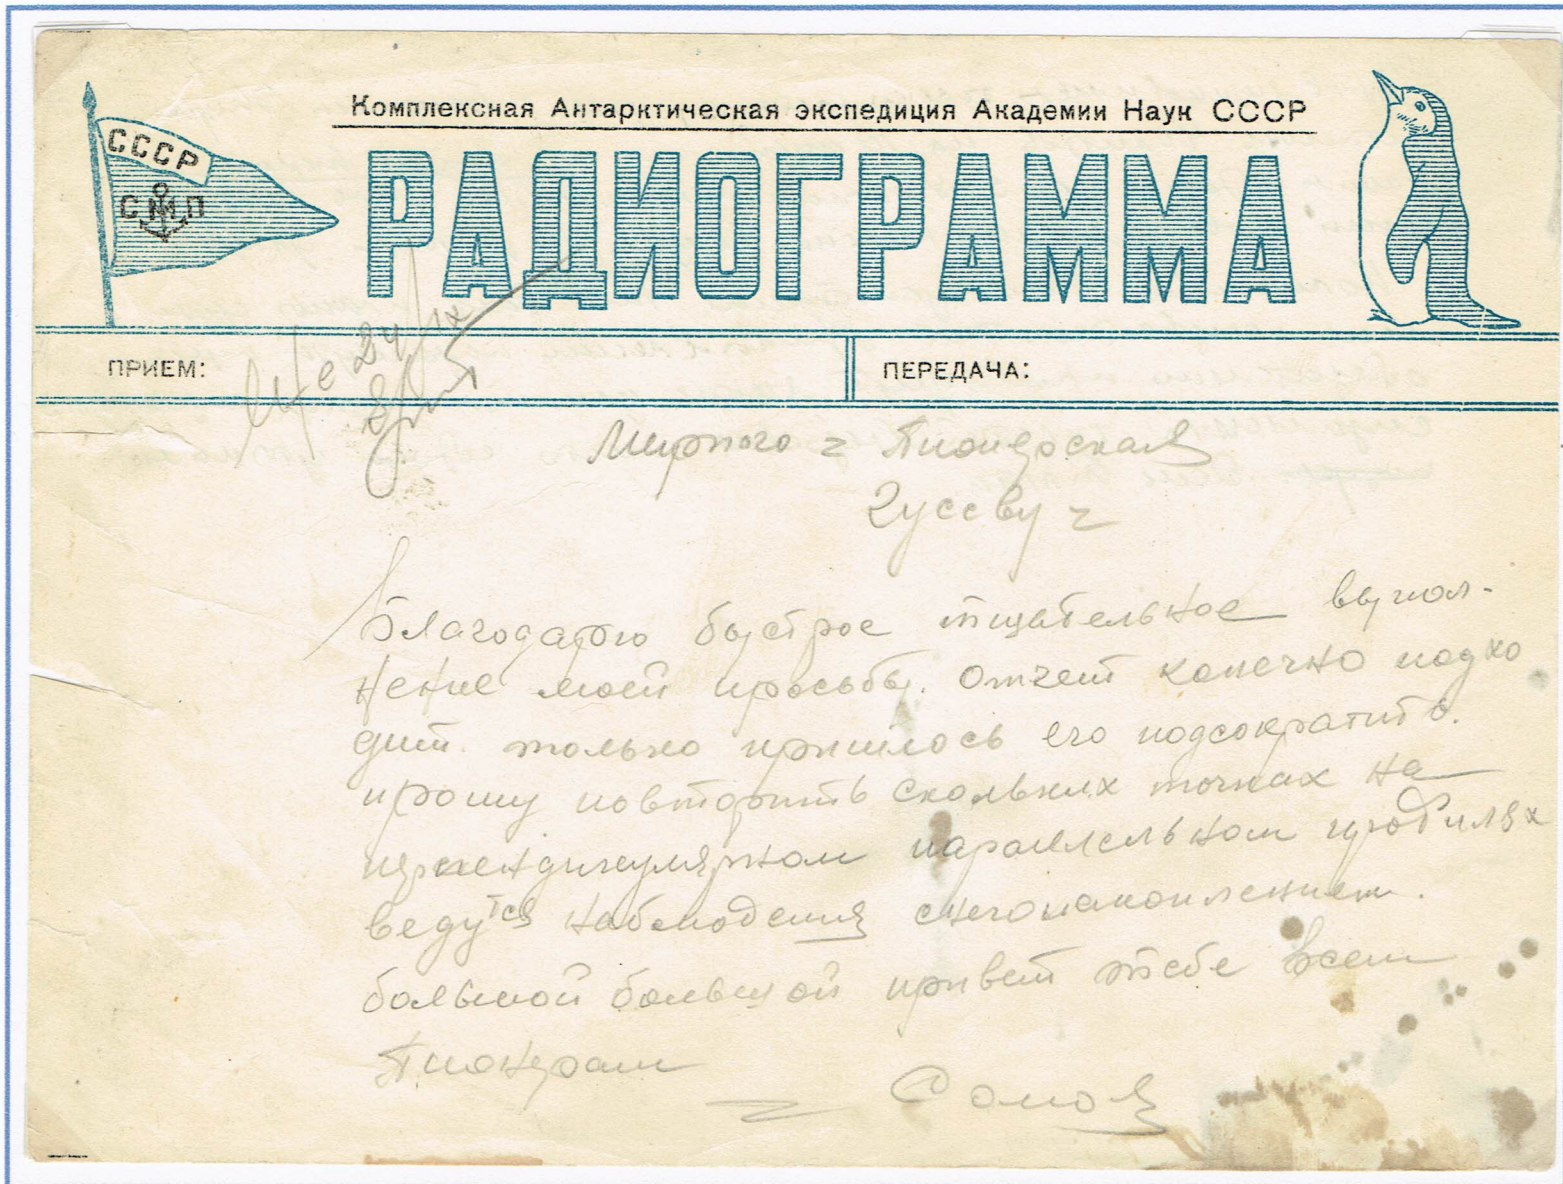 Комплексная Антарктическая экспедиция Академии Наук СССР
СССР
СМП
РАДИОГРАММА
ПРИЕМ:
ПЕРЕДАЧА:
24/IX
Мирного = Пионерская
Гусеву =
Благодарю быстрое тщательное выпол-
нение моей просьбы. отчет конечно подхо
дит. только пришлось его подсократить.
прошу повторить скольких точках на
перпендикулярном параллельном профилях
ведутся наблюдения снегонакоплением.
большой большой привет тебе всем
Пионерам
= Сомов